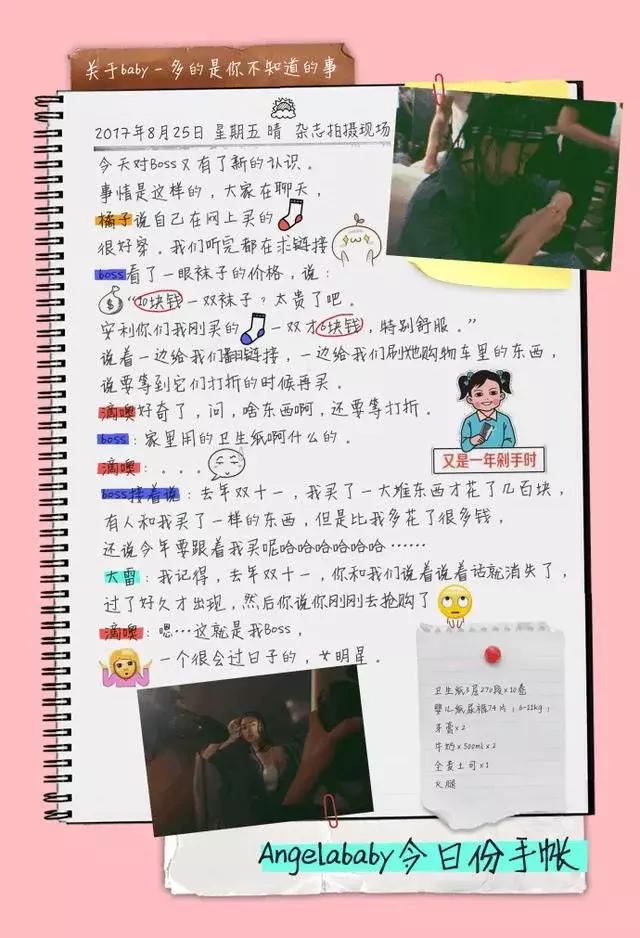 关于baby-多的是你不知道的事
2017年8月25日 星期五 晴 杂志拍摄现场
今天对Boss又有了新的认识。
事情是这样的，大家在聊天，
橘子说自己在网上买的
很好穿。我们听完都在求链接
boss看了一眼袜子的价格，说：
$
“10块钱一双袜子？太贵了吧。
安利你们我刚买的 一双才6块钱，特别舒服。”
说着一边给我们翻链接，一边给我们刷她购物车里的东西，
说要等到它们打折的时候再买。
滴噢好奇了，问，啥东西啊，还要等打折。
boss：家里用的卫生纸啊什么的。
滴噢：。。。
又是一年剁手时
boss接着说：去年双十一，我买了一大堆东西才花了几百块，
有人和我买了一样的东西，但是比我多花了很多钱，
还说今年要跟着我买呢哈哈哈哈哈哈……
大雷：我记得，去年双十一，你和我们说着说着话就消失了，
过了好久才出现，然后你说你刚刚去抢购了
滴噢：嗯…这就是我Boss，
一个很会过日子的，女明星。
卫生纸3层270段x10卷
婴儿纸尿裤74片；6-11kg；
牙膏x2
牛奶x500mlx2
全麦土司x1
火腿
Angelababy今日份手帐